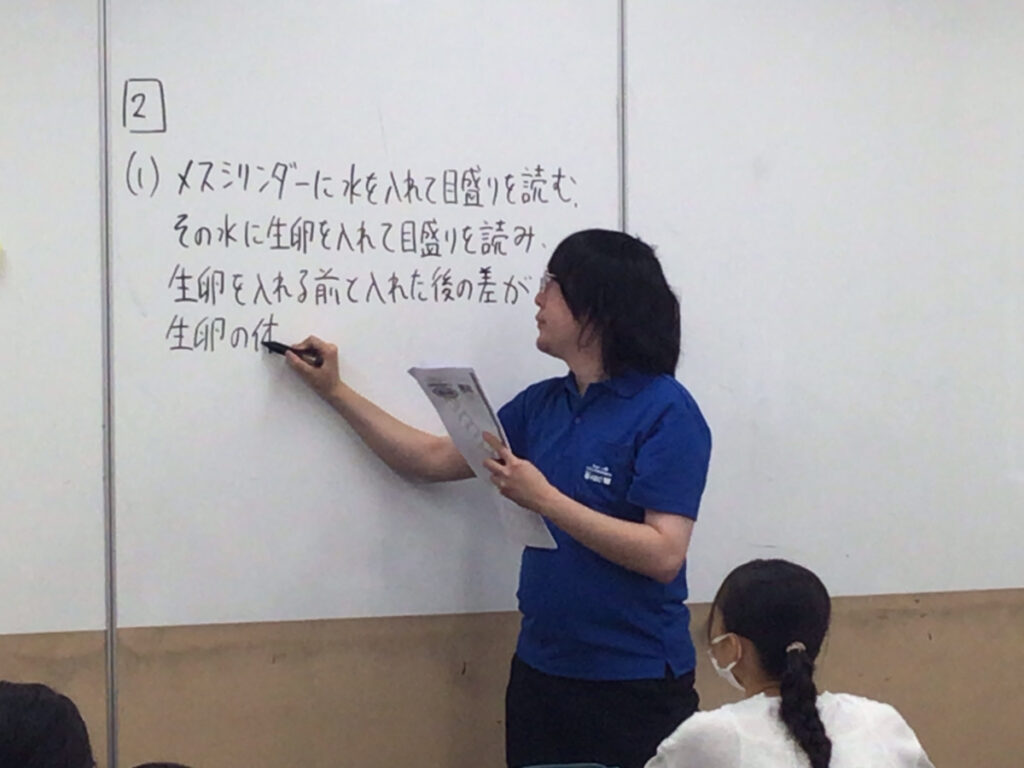 2
(1) メスシリンダーに水を入れて目盛りを読む、
その水に生卵を入れて目盛りを読み、
生卵を入れる前と入れた後の差が
生卵の体